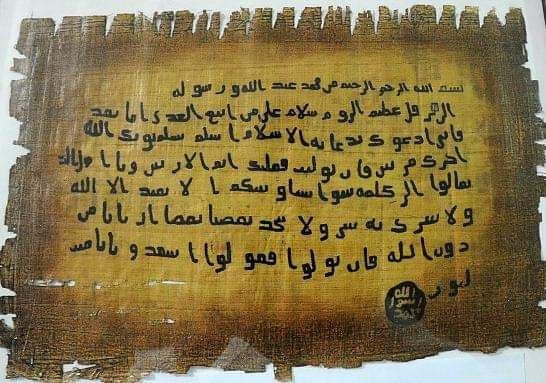 بسم الله الرحمن الرحيم من محمد عبد الله ورسوله
الى هرقل عظيم الروم سلام على من اتبع الهدى اما بعد
فاني ادعوك بدعاية الاسلام اسلم تسلم يوتك الله
اجرك مرتين فان توليت فعليك اثم الاريسين ويا اهل الكتاب
تعالوا الى كلمة سوا بيننا وبينكم ا لا نعبد الا الله
ولا نشرك به شيا ولا يتخذ بعضنا بعضا اربابا من
دون الله فان تولوا فقولوا اشهدوا بانا مس
لمون
الله
رسول
محمد